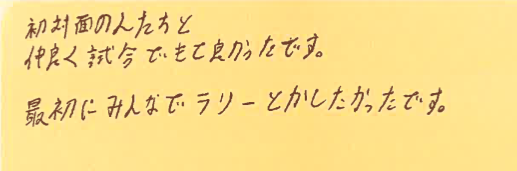 初対面の人たちと
仲良く試合できて良かったです。
最初にみんなでラリーとかしたかったです。